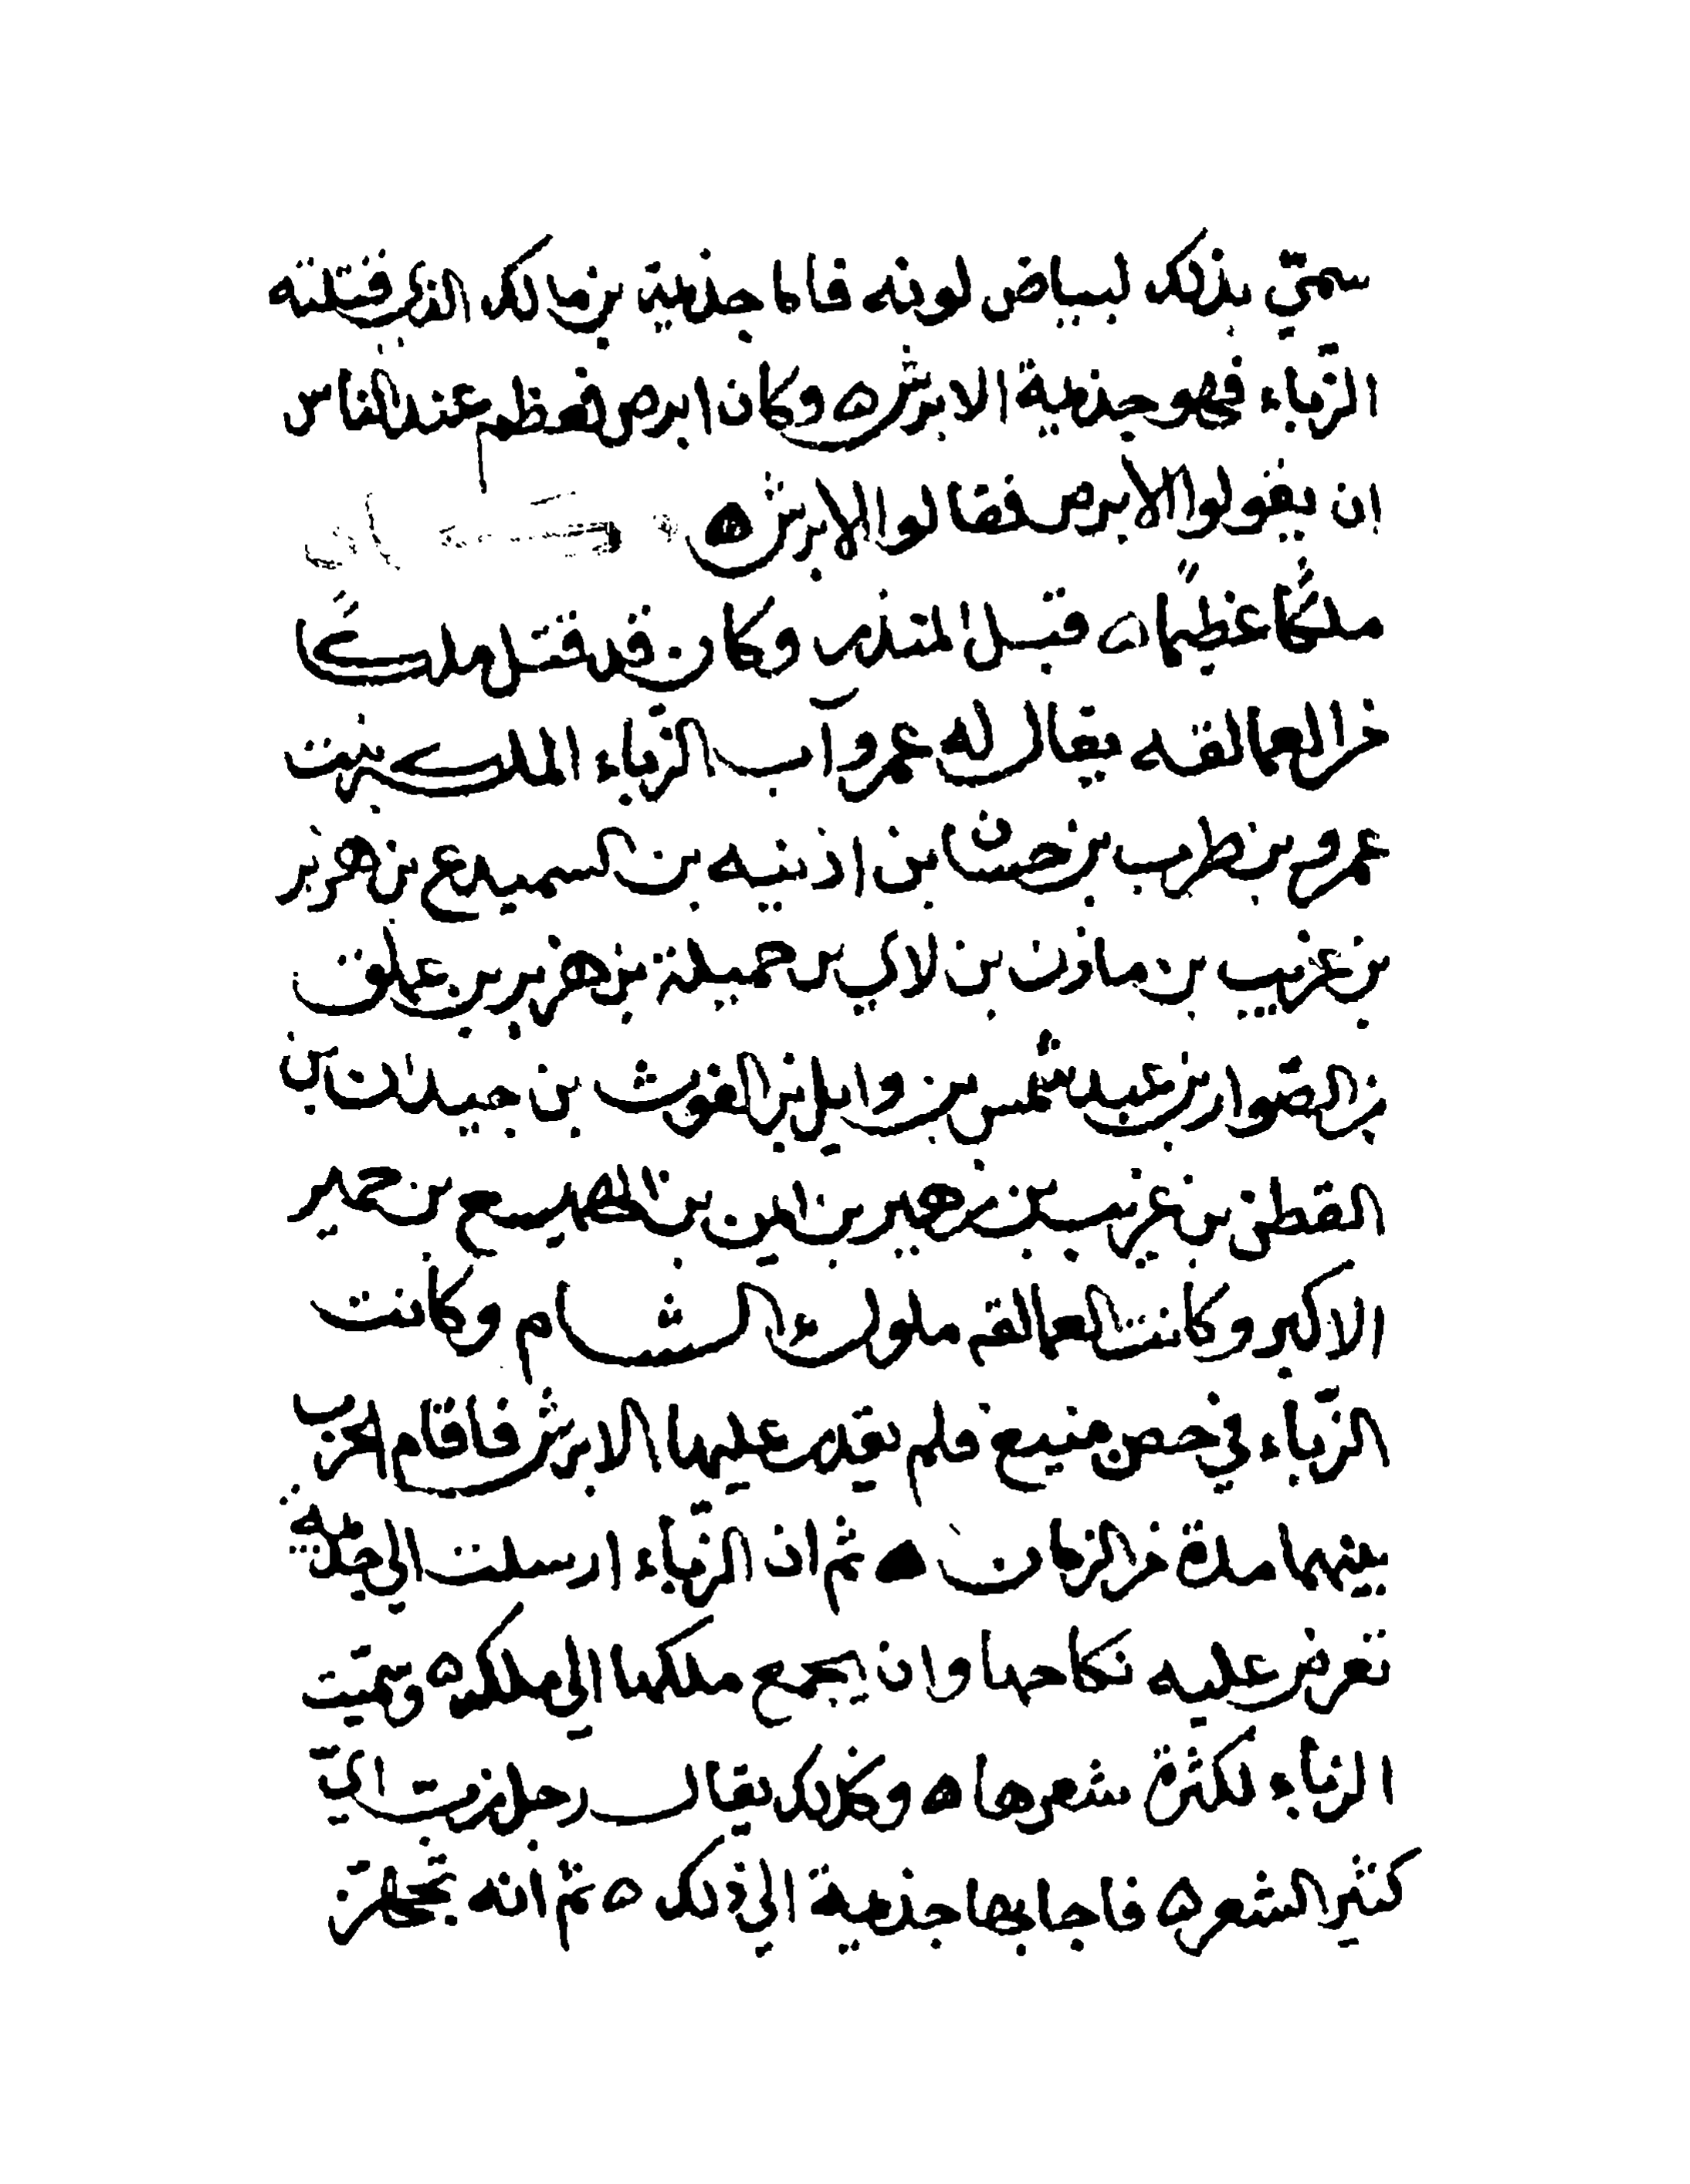 سمّي بذلك لبياض لونه فاما جذيمة بن مالك الذي قتلته
الزّباء فهو جذيمة الابرش ه وكان ابرص فعظم عند الناس
ان يقولوا الابرص فقالوا الابرش ه
ملكًا عظيمًا ه قبل المنذر وكان قد قتل ملكًا
من العمالقه يقال له عمرو آب الزّباء الملك بنت
عمرو بن ظرب بن حسان بن اذينه بن السميدع بن هزبر
بن عريب بن مازن بن لاي بن حميلة بن هزبر بن عملق
بن الصّوار بن عبد شمس بن وايل بن الغوث بن جيدان بن
القطن بن عريب بن زهير بن ايمن بن الهميسع بن حمير
الاكبر وكانت العمالقة ملوك الشام وكانت
الزّباء في حصن منيع فلم يقدر عليها الابرش فاقام الحرب
بينهما مدة من الزمان ه ثم ان الزّباء ارسلت الى جذيمة
تعرض عليه نكاحها وان يجمع ملكها الى ملكه ه وسمّيت
الزباء لكثرة شعرها ه وكذلك يقال رجل ازب اي
كثير الشعر ه فاجابها جذيمة الى ذلك ه ثم انه تجهّز